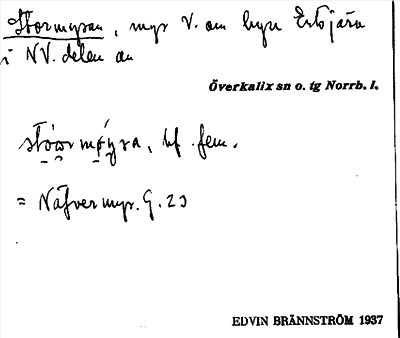 Stormyran, myr V. om byn Erksjärv
i NV. delen av
Överkalix sn o. tg Norrb. l.
stóormýra, bf. fem.
= Näfvermyr. G. 23
EDVIN BRÄNNSTRÖM 1937